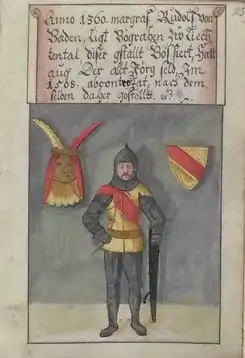 Anno 1360. margraf Rudolf von
Baden, ligt Begraben zw Liech
tental diser gstallt Bossiert, hatt
auf Der alt Jörg seld, Im
1508. abcontrafat, nach dem
selben daher gestellt.